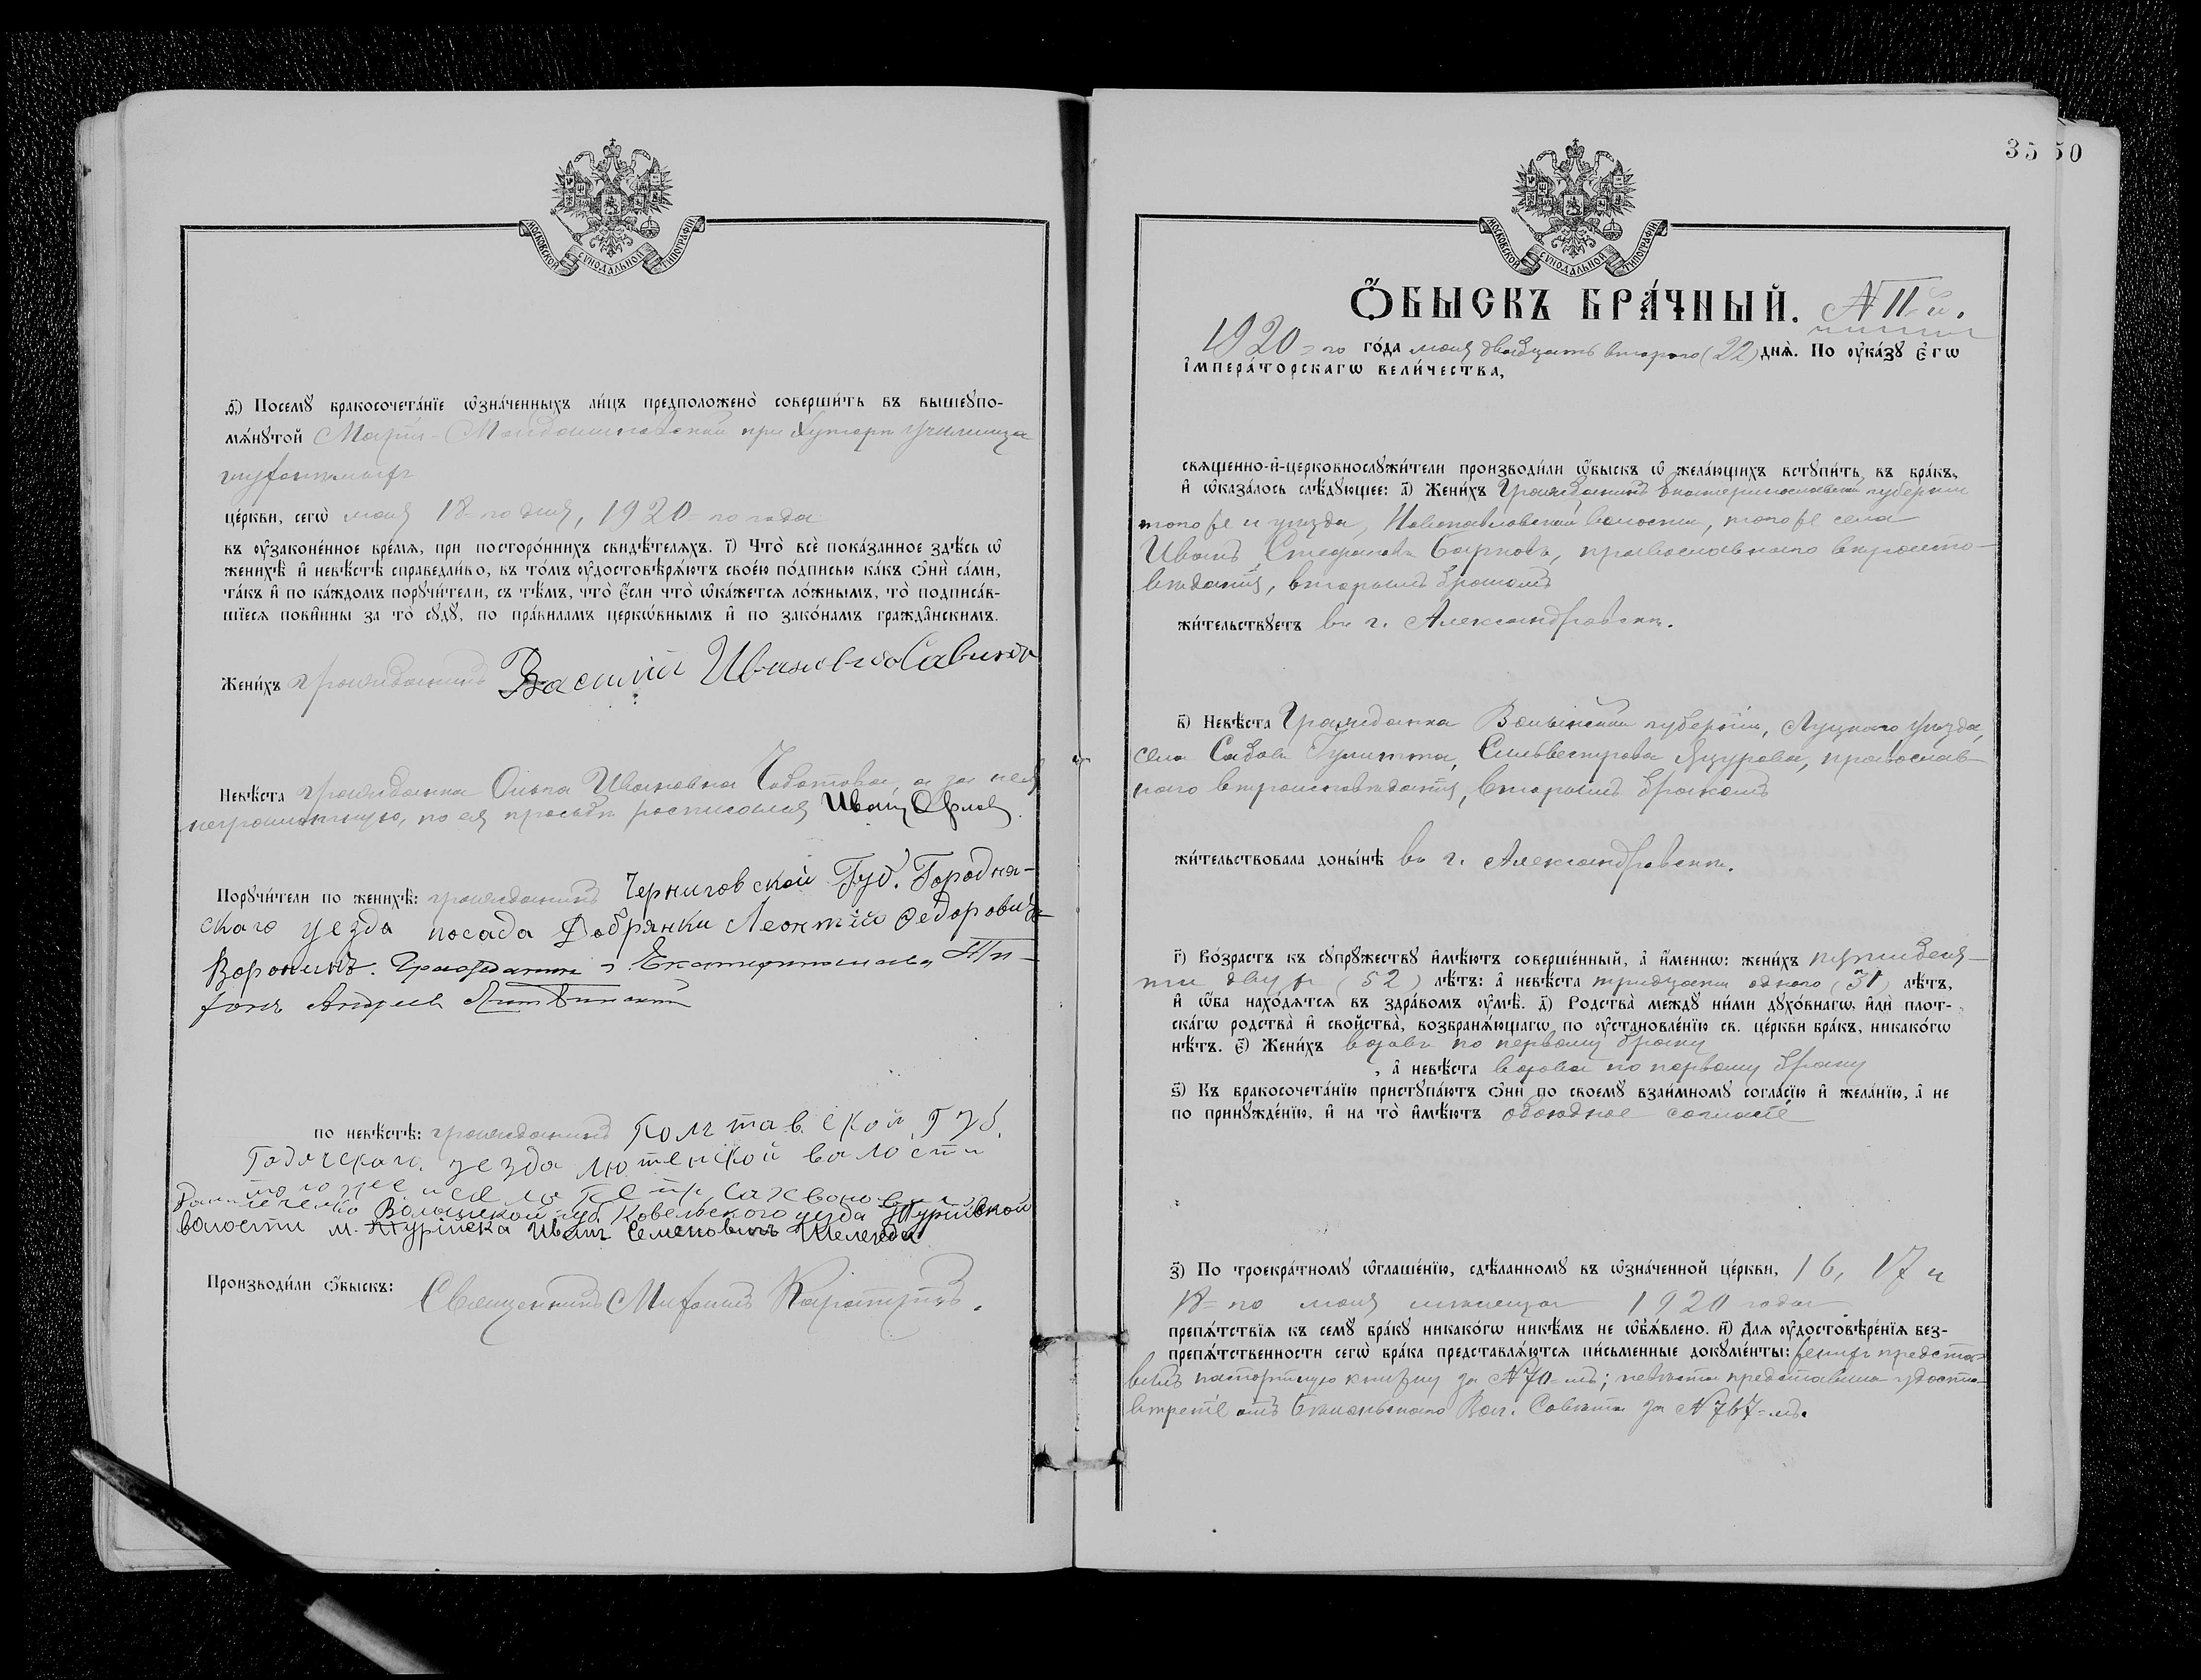 МОСКОВСКОЙ СУНОДАЛЬНОЙ ТИПОГРАФІИ
.ѳ҃.) Посемꙋ̀ бракосочета́нїе ѡ҆зна́ченныхъ ли́цъ предположено̀ соверши́ть въ вышеꙋпо-
мѧ́нꙋтой при Хуторѣ училища
це́ркви, сегѡ̀ мая 18-го дня, 1920-го года
въ ᲂу҆законе́нное вре́мѧ, при посторо́ннихъ свидѣ́телѧхъ. і҃) Что̀ всѐ пока́занное здѣ́сь ѡ҆
женихѣ̀ и҆ невѣ́стѣ справедли́во, въ то́мъ ᲂу҆достовѣрѧ́ютъ свое́ю по́дписью ка́къ ѻ҆нѝ са́ми,
та́къ и҆ по ка́ждомъ порꙋчи́тели, съ тѣ́мъ, что̀ є҆́сли что̀ ѡ҆ка́жетсѧ ло́жнымъ, то̀ подписа́в-
шїесѧ пови́нны за то̀ сꙋдꙋ̀, по пра́виламъ церкѡ́внымъ и҆ по зако́намъ гражда́нскимъ.
Жени́хъ гражданинъ Василий Ивановичъ Савинъ
Невѣ́ста гражданка Ольга Ивановна Чоботова, а за нея
неграмотную, по ея просьбѣ росписался Иванъ Орлов
Порꙋчи́тели по женихѣ̀: гражданинъ Черниговской Губ. Городня-
ского уезда посада Добрянки Леонтій Федоровичъ
Воронинъ. Гражданин г. Екатеринослава Три-
фонъ Андреев
по невѣ́стѣ: гражданинъ Полтавской Губ.
Годячскаго уезда лютенской валости
того же села Петр
Волынской губ. Ковельского уезда Турійской
волости м. Турійска Иванъ Семеновичъ Шелегда
Производи́ли ѻ҆́быскъ: Священникъ Митрофанъ
35 50
МОСКОВСКОЙ СУНОДАЛЬНОЙ ТИПОГРАФІИ
Ѻ҆́БЫСКЪ БРА́ЧНЫЙ. № 11-й.
1920-го го́да мая двадцать второго (22) днѧ̀. По ᲂу҆ка́зꙋ є҆гѡ̀
і҆мпера́торскагѡ вели́чества,
свѧще́нно-и҆-церковнослꙋжи́тели производи́ли ѡ҆́быскъ ѡ҆ жела́ющихъ встꙋпи́ть въ бра́къ,
и҆ ѡ҆каза́лось слѣ́дꙋющее: а҃) Жени́хъ Гражданинъ Екатеринославской губерніи
того же и уѣзда, Новопавловской волости, того же села
Иванъ Стефановъ православнаго вѣроиспо-
вѣданія, вторымъ бракомъ
жи́тельствꙋетъ въ г. Александровскѣ.
в҃) Невѣ́ста Гражданка Волынской губерніи, Луцкаго уѣзда,
села Садова Гулитта, Сильвестрова Яцурова, православ-
наго вѣроисповѣданія, вторымъ бракомъ
жи́тельствовала доны́нѣ въ г. Александровскѣ.
г҃) Во́зрастъ къ сꙋпрꙋ́жествꙋ и҆мѣ́ютъ соверше́нный, а҆ и҆́меннѡ: жени́хъ пятидеся-
ти двухъ (52) лѣ́тъ: а҆ невѣ́ста тридцати одного (31) лѣ́тъ,
и҆ ѡ҆́ба нахо́дѧтсѧ въ здра́вомъ ᲂу҆мѣ̀. д҃) Родства̀ междꙋ̀ ни́ми дꙋхо́внагѡ, и҆лѝ плот-
ска́гѡ родства̀ и҆ сво́йства̀, возбранѧ́ющагѡ по ᲂу҆становле́нїю св. це́ркви бра́къ, никако́гѡ
нѣ́тъ. є҃) Жени́хъ вдовъ по первому браку
, а҆ невѣ́ста вдова по первому браку
ѕ҃) Къ бракосочета́нїю пристꙋпа́ютъ ѻ҆нѝ по своемꙋ̀ взаи́мномꙋ согла́сїю и҆ жела́нїю, а҆ не
по принꙋжде́нїю, и҆ на то̀ и҆мѣ́ютъ обоюдное согласіе
з҃) По троекра́тномꙋ ѡ҆глаше́нїю, сдѣ́ланномꙋ въ ѡ҆зна́ченной це́ркви, 16, 17 и
18-го мая мѣсяца 1920 года
препѧ́тствїѧ къ семꙋ̀ бра́кꙋ никако́гѡ никѣ́мъ не ѡ҆б̾ѧ́влено. и҃) Для ᲂу҆достовѣ́ренїѧ без-
препѧ́тственности сегѡ̀ бра́ка представлѧ́ютсѧ пи́сьменные докꙋме́нты: женихъ предста-
вилъ паспортную книжку за № 70-мъ; невѣста представила удосто-
вѣреніе отъ Вол. Совѣта за № 767-мъ.